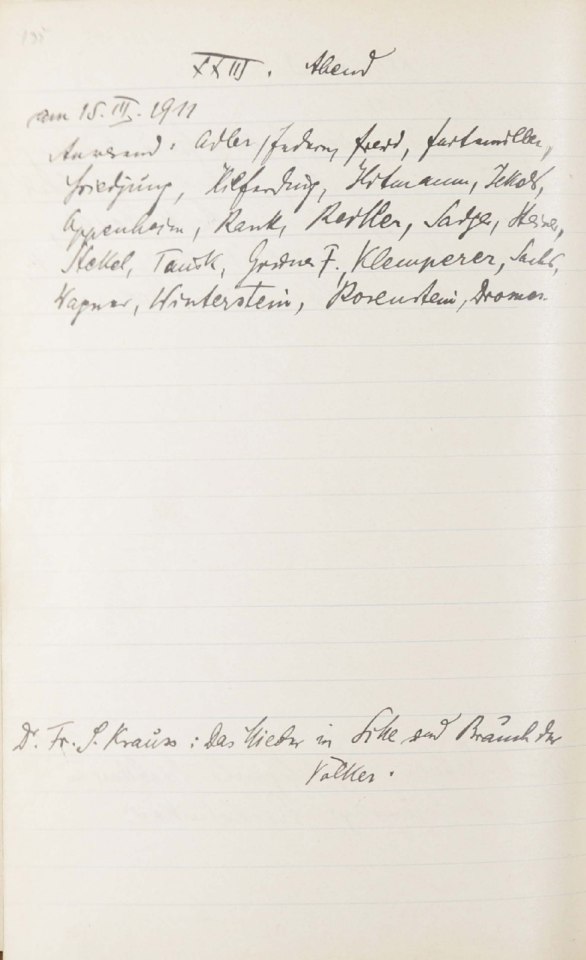 195
XXIII. Abend
am 15. III. 1911
Anwesend: Adler, Federn, Freud, Furtmüller,
Friedjung, Hilferding, Hitschmann, Jekels,
Oppenheim, Rank, Reitler, Sadger, Steiner,
Stekel, Tausk, Grüner F., Klemperer, Sachs,
Wagner, Winterstein, Rosenstein,
Dr. Fr. S. Krauss: Das Mieder in Sitte und Brauch der
Völker.